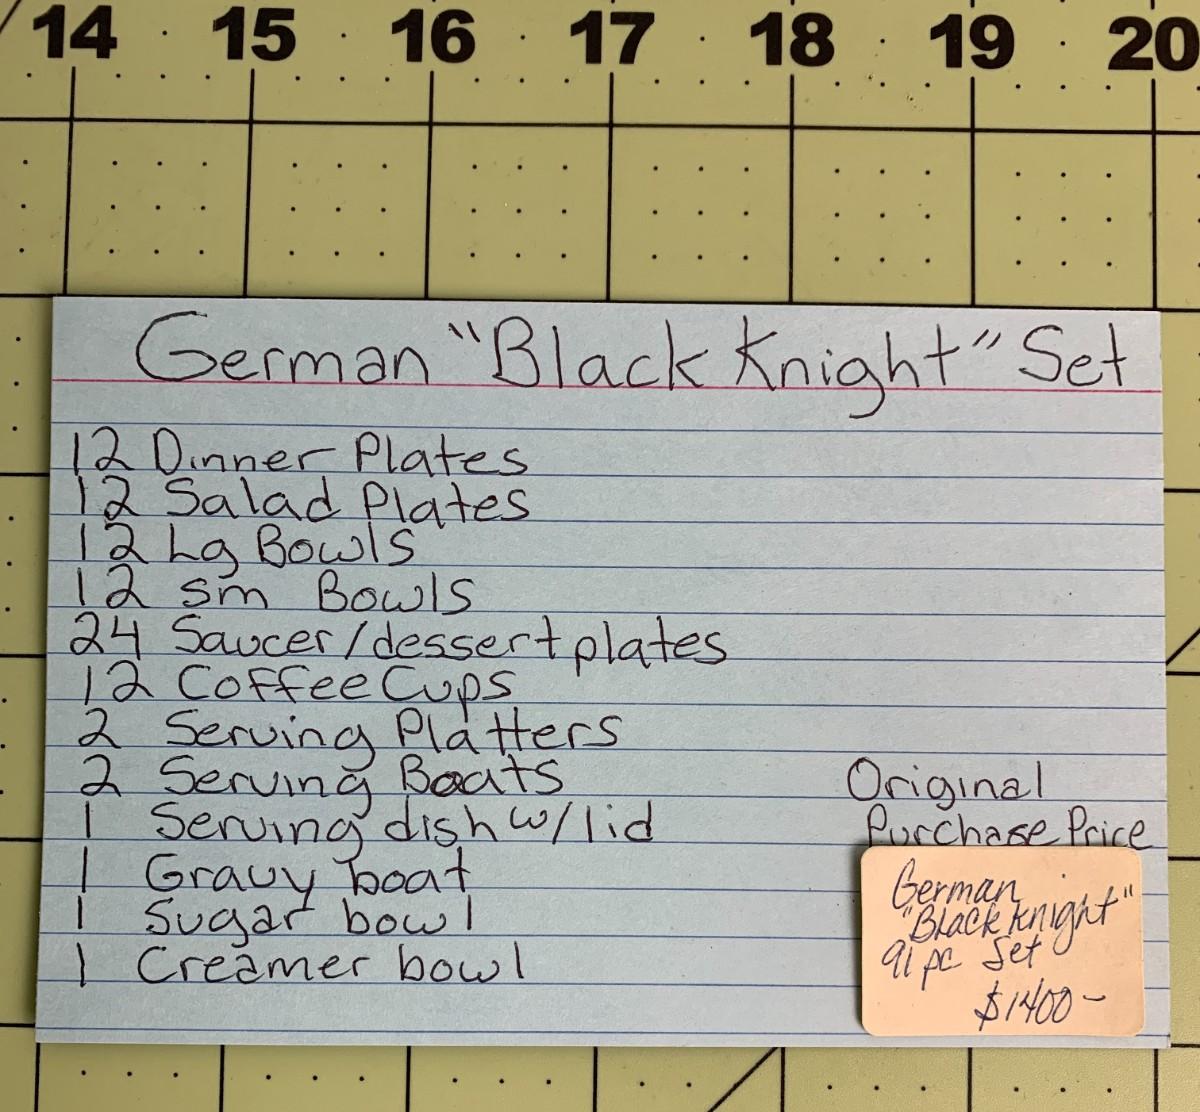 14 15 16 17 18 19 20
German "Black Knight" Set
12 Dinner Plates
12 Salad Plates
12 Lg Bowls
12 sm Bowls
24 Saucer/dessert plates
12 Coffee Cups
2 Serving Platters
2 Serving Boats
1 Serving dish w/lid
1 Gravy boat
1 Sugar bowl
1 Creamer bowl
Original
Purchase Price
German
"Black Knight"
91 pc Set
$1400-